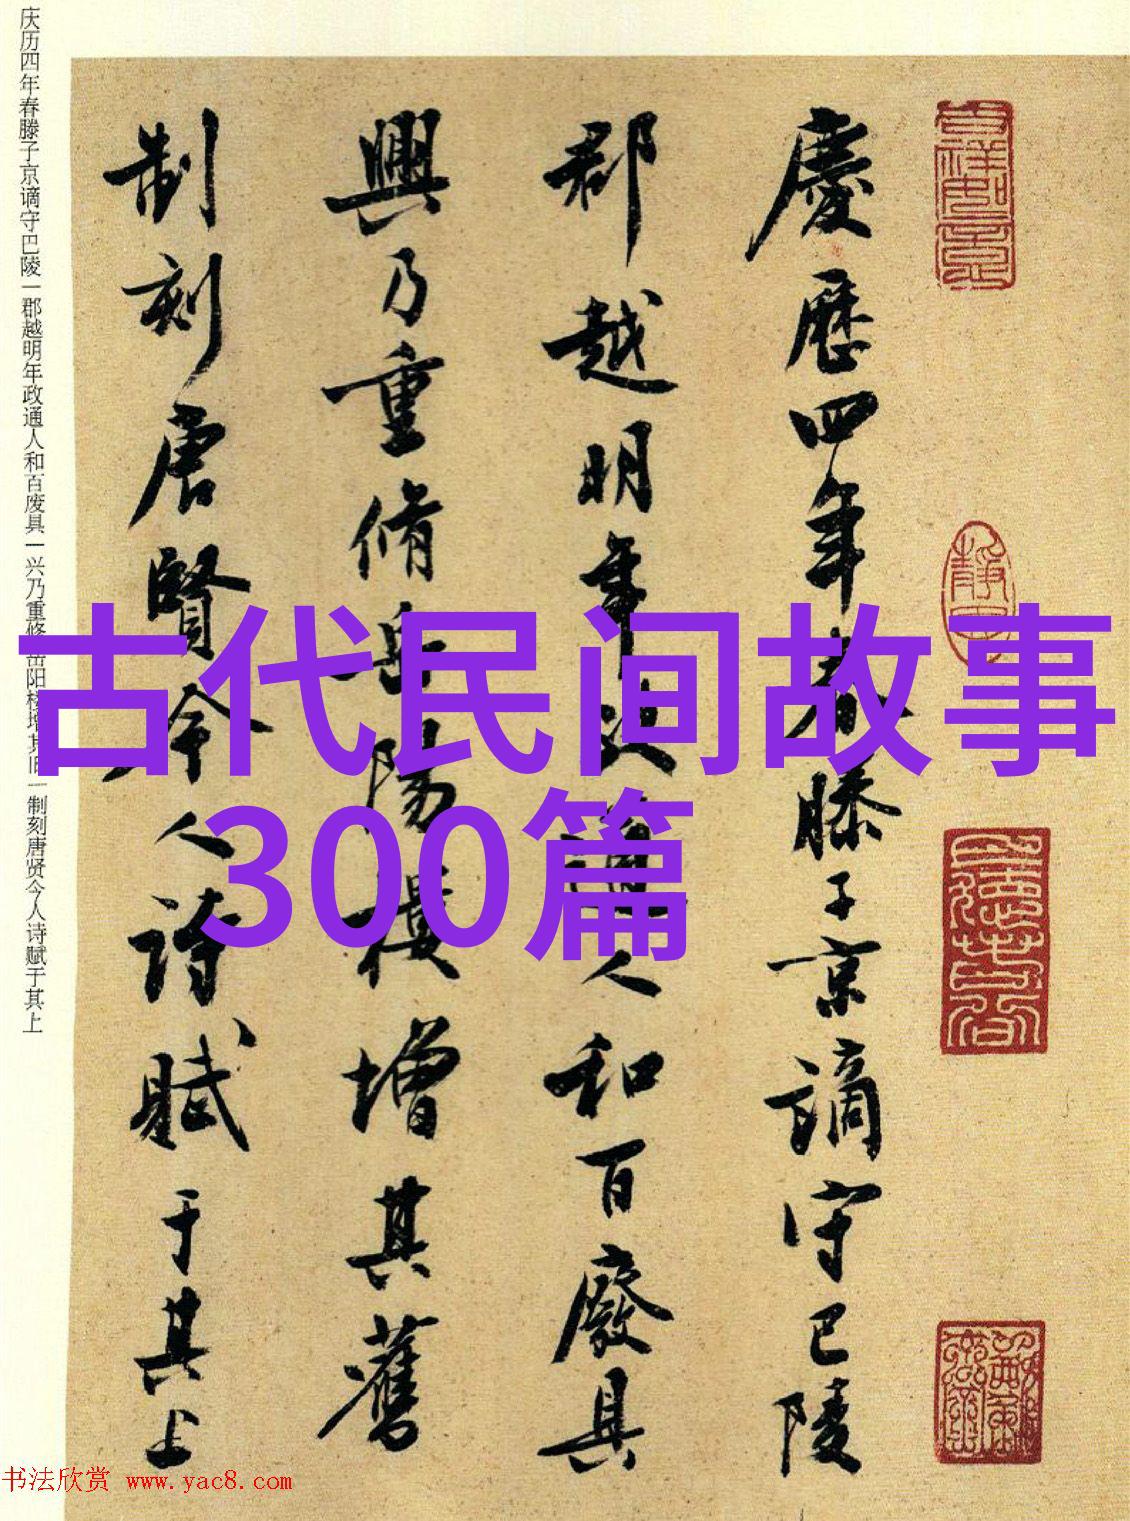 古代民间故事
300篇
慶歷四年春滕子京謫守巴陵
郡越明年政通人和百廢具
興乃重脩岳陽樓增其舊
制刻唐賢今人詩賦于其上
庆历四年春滕子京谪守巴陵|郡越明年政通人和百废具|兴乃重修岳阳楼增其旧|制刻唐贤今人诗赋于其上
书法欣赏 www.yac8.com